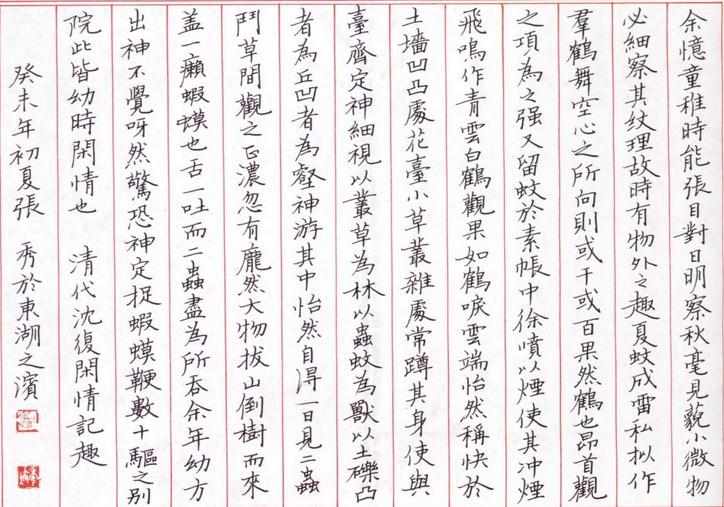 余憶童稚時能張目對日明察秋毫見藐小微物
必細察其紋理故時有物外之趣夏蚊成雷私拟作
羣鶴舞空心之所向則或千或百果然鶴也昂首觀
之項為之强又留蚊於素帳中徐噴以煙使其冲煙
飛鳴作青雲白鶴觀果如鶴唳雲端怡然稱快於
土墻凹凸處花臺小草叢雜處常蹲其身使與
臺齊定神細視以叢草為林以蟲蚊為獸以土礫凸
者為丘凹者為壑神游其中怡然自得一日見二蟲
鬥草間觀之正濃忽有龐然大物拔山倒樹而來
盖一癩蝦蟆也舌一吐而二蟲盡為所吞余年幼方
出神不覺呀然驚恐神定捉蝦蟆鞭數十驅之别
院此皆幼時閑情也 清代沈復閑情記趣
癸未年初夏張 秀於東湖之濱